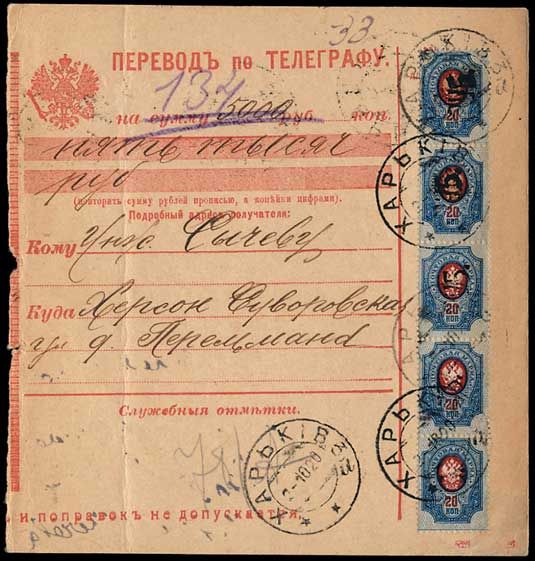 33.
ПЕРЕВОДЪ по ТЕЛЕГРАФУ.
134
на сумму 5000 руб. коп.
пять тысяч
руб
(повторить сумму рублей прописью, а копѣйки цифрами).
Подробный адресъ получателя:
Кому Сычеву
Куда Херсон Суворовская
ул д. Перельмана
Служебныя отмѣтки.
ХАРЬКІВЪ
2-1020
и поправокъ не допускается.
20
20 КОП
20 КОП
20 КОП
20 КОП
ХАРЬКІВЪ
ХАРЬКІВЪ
ХАРЬКІВЪ
ХАРЬКІВЪ